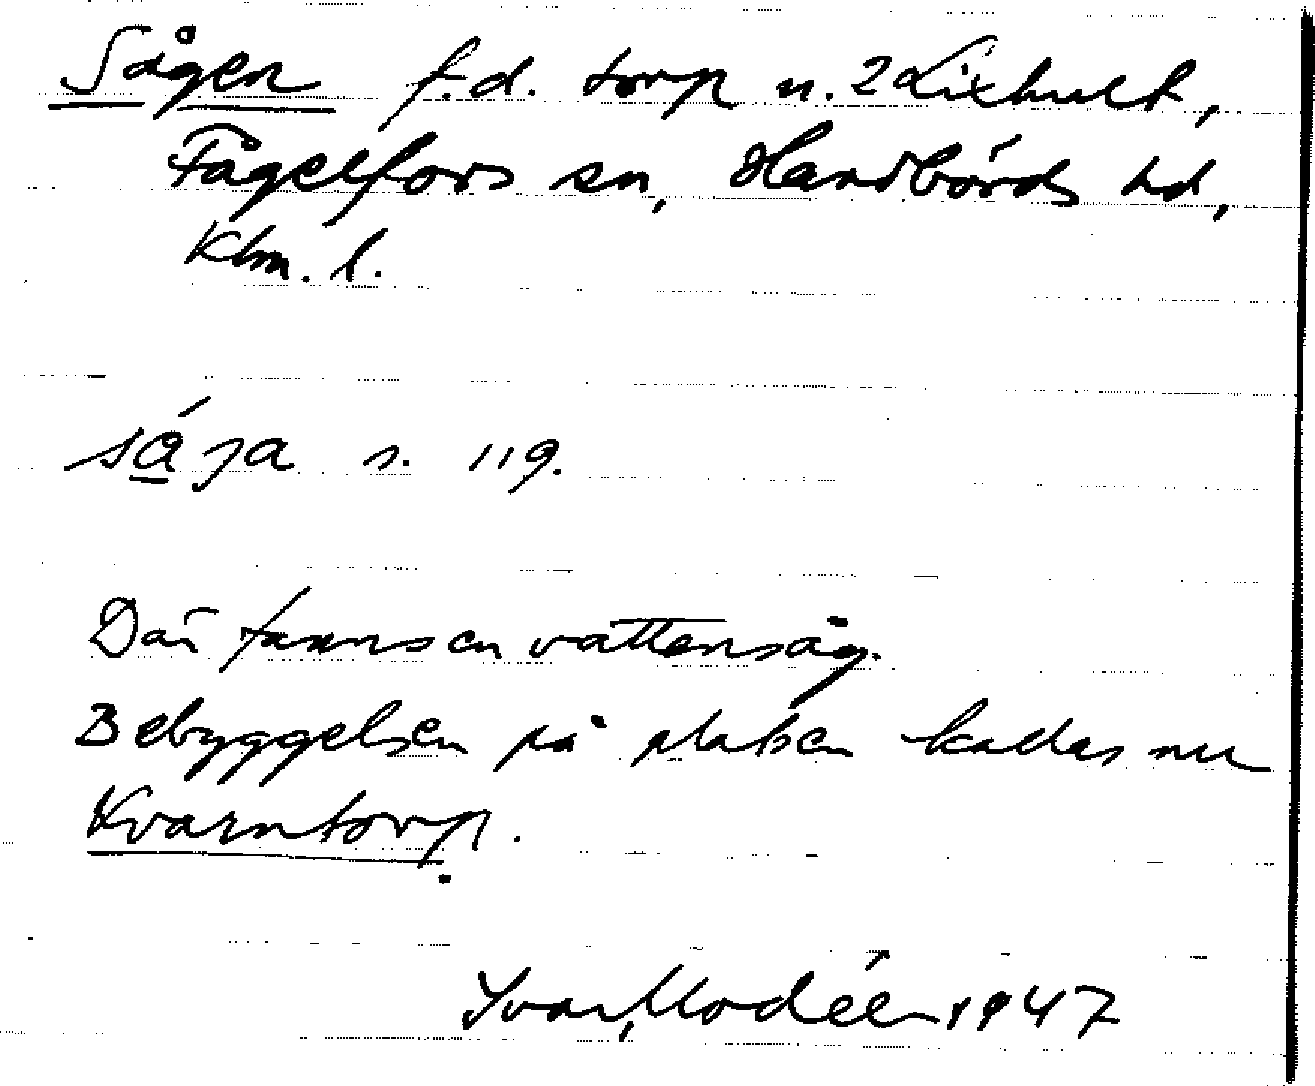 Sågen f.d. torp u. 2 Lixhult,
Fågelfors sn, Handbörds hd,
Klm. l.
så̱ja s. 119.
Där fanns en vattensåg.
Bebyggelsen på platsen kallas nu
Kvarntorp.
Ivar Modéer 1947